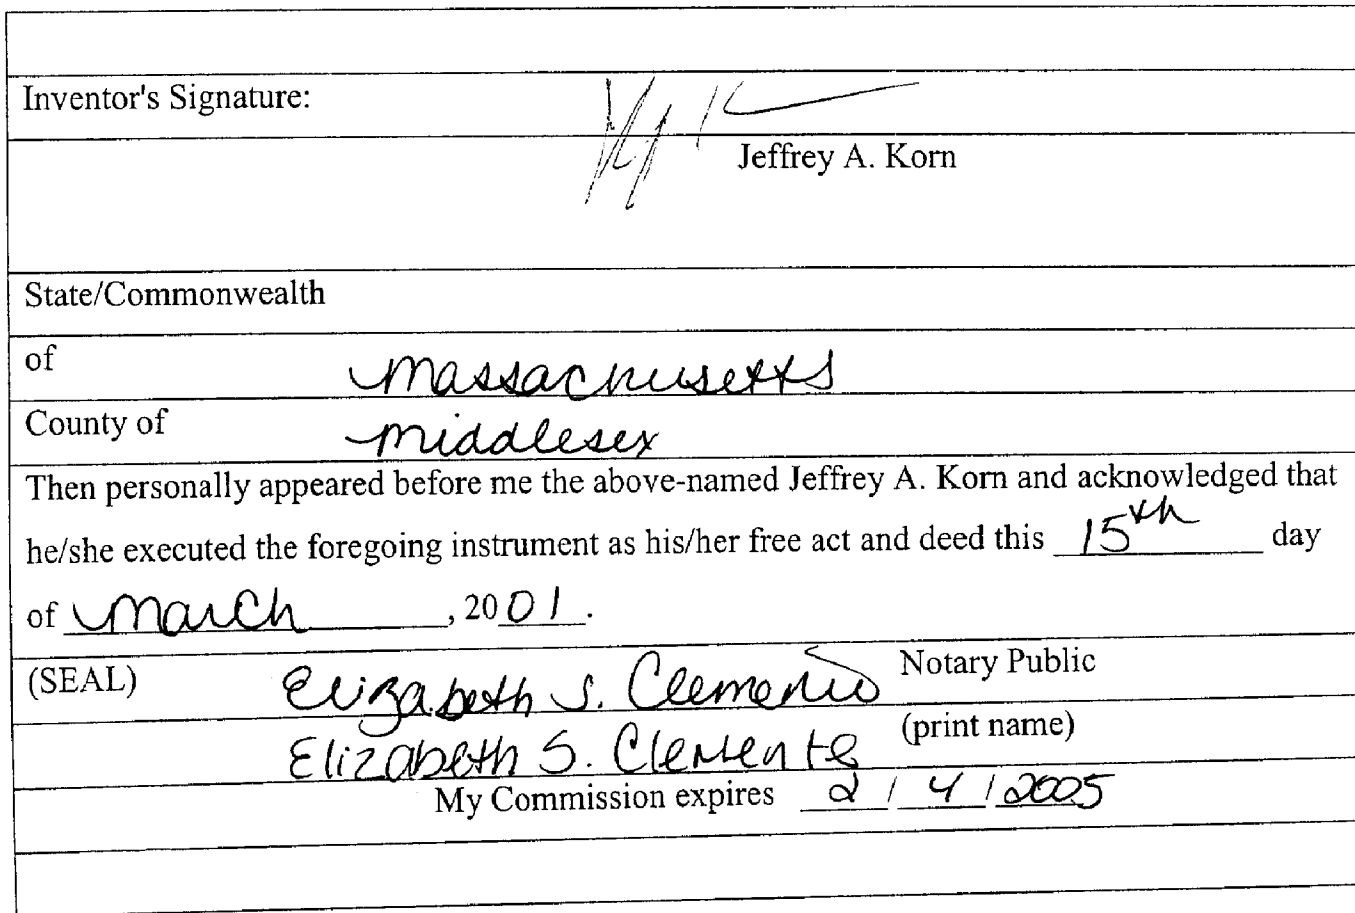 Inventor's Signature:
Jeffrey A. Korn
State/Commonwealth
of Massachusetts
County of Middlesex
Then personally appeared before me the above-named Jeffrey A. Korn and acknowledged that
he/she executed the foregoing instrument as his/her free act and deed this 15th day
of March, 2001.
(SEAL) Elizabeth S. Clemente Notary Public
Elizabeth S. Clemente (print name)
My Commission expires 2/4/2005